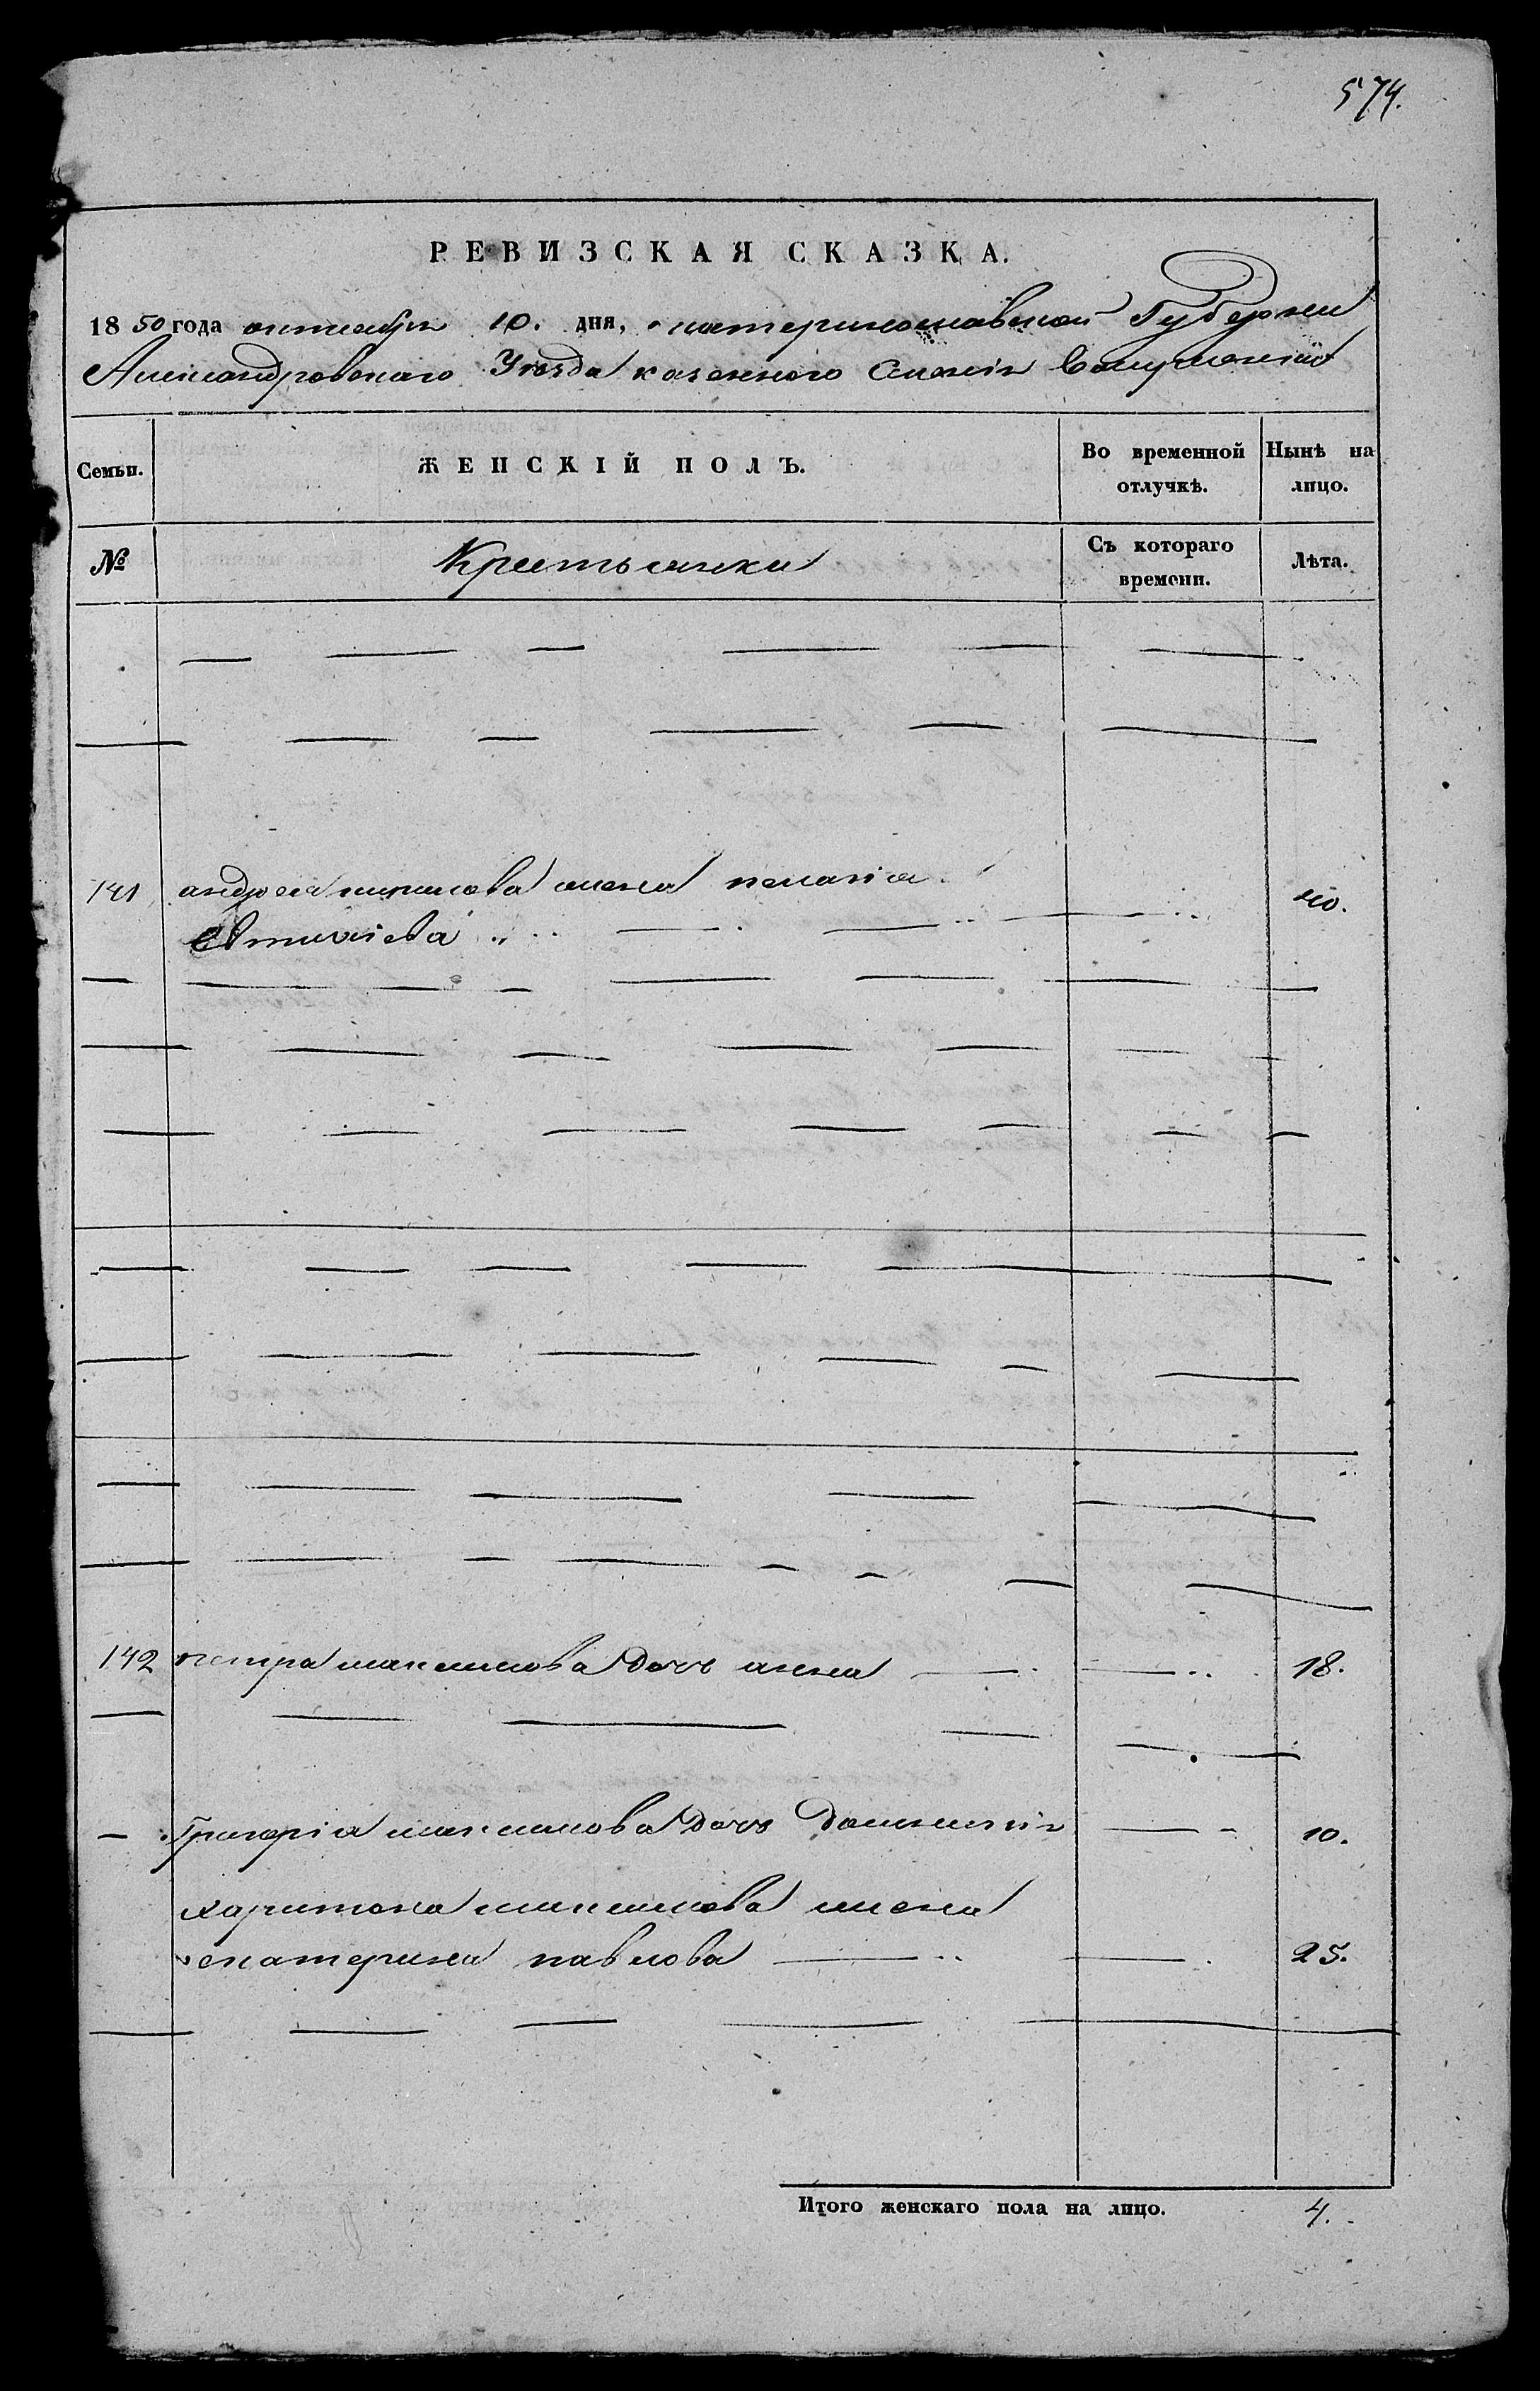 574.
РЕВИЗСКАЯ СКАЗКА.
1850 года октября 10. дня, екатеринославской Губернии
Александровскаго Уезда казенного Селенія
Семьи.
ЖЕНСКІЙ ПОЛЪ.
Во временной отлучкѣ.
Нынѣ на лицо.
№
Крестьянки
Съ котораго времени.
Лѣта.
141 андрея жена пелагия
Евтихіева 40.
142 петра максимова дочь анна 18.
— Григорія максимова дочь Домникія 10.
харитона максимова жена
екатерина павлова 25.
Итого женскаго пола на лицо. 4.